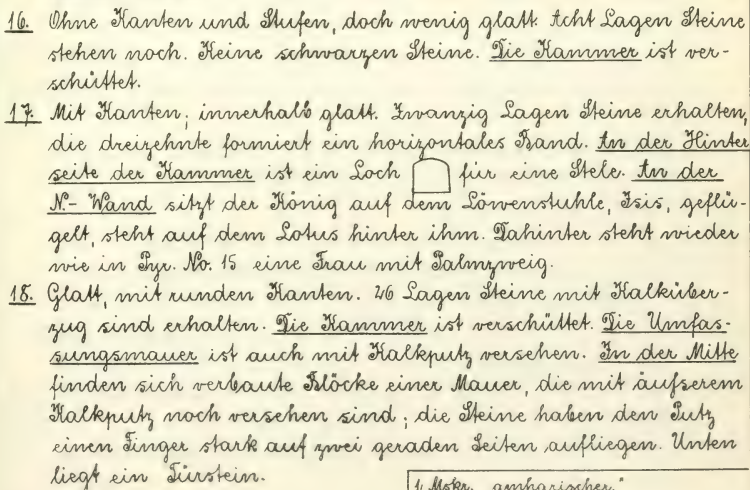 16. Ohne Kanten und Stufen, doch wenig glatt. Acht Lagen Steine
stehen noch. Keine schwarzen Steine. Die Kammer ist ver-
schüttet.
17. Mit Kanten; innerhalb glatt. Zwanzig Lagen Steine erhalten,
die dreizehnte formiert ein horizontales Band. An der Hinter
seite der Kammer ist ein Loch für eine Stele. An der
N.-Wand sitzt der König auf dem Löwenstuhle, Isis, geflü-
gelt, steht auf dem Lotus hinter ihm. Dahinter steht wieder
wie in Pyr. No. 15 eine Frau mit Palmzweig.
18. Glatt, mit runden Kanten. 26 Lagen Steine mit Kalküber-
zug sind erhalten. Die Kammer ist verschüttet. Die Umfas-
sungsmauer ist auch mit Kalkputz versehen. In der Mitte
finden sich verbaute Blöcke einer Mauer, die mit äußerem
Kalkputz noch versehen sind; die Steine haben den Putz
einen Finger stark auf zwei geraden Seiten aufliegen. Unten
liegt ein Türstein.
1 Mskr. „amharischer."